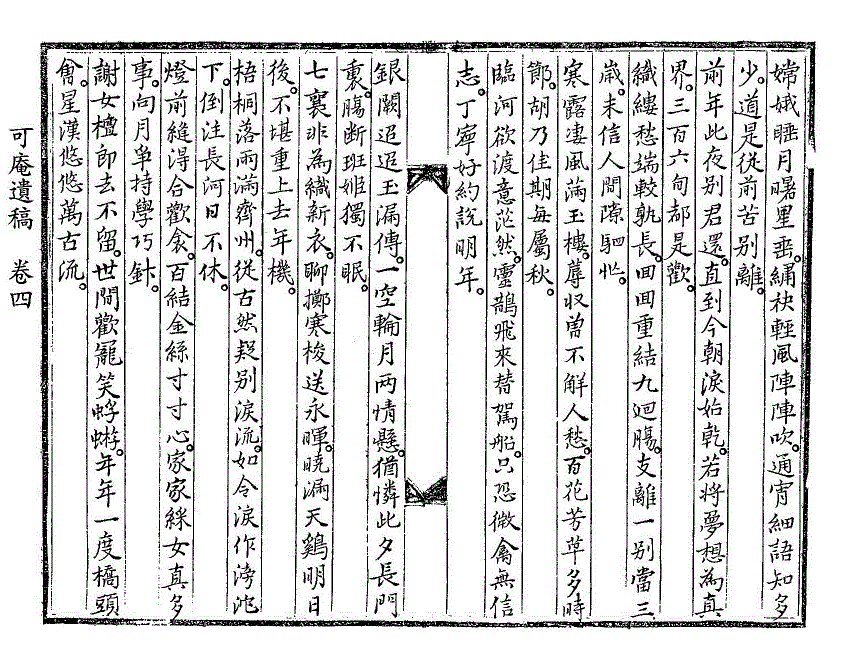 嫦娥睡月曙星垂。繡袂輕風陣陣吹。通宵細語知多
少。道是從前苦別離。
前年此夜別君還。直到今朝淚始乾。若將夢想為真
界。三百六旬都是歡。
織縷愁端較孰長。回回重結九迴腸。支離一別當三
歲。未信人間隙駟忙。
寒露凄風滿玉樓。蓐收曾不解人愁。百花芳草多時
節。胡乃佳期每屬秋。
臨河欲渡意茫然。靈鵲飛來替駕船。只恐微禽無信
志。丁寧好約說明年。
銀闕迢迢玉漏傳。一空輪月兩情懸。猶憐此夕長門
裏。腸斷班姬獨不眠。
七襄非為織新衣。聊擲寒梭送永暉。曉漏天鷄明日
後。不堪重上去年機。
梧桐落雨滿齊州。從古然疑別淚流。如令淚作滂沱
下。倒注長河日不休。
燈前縫得合歡衾。百結金絲寸寸心。家家綵女真多
事。向月爭持學巧針。
謝女檀郎去不留。世間歡寵笑蜉蝣。年年一度橋頭
會。星漢悠悠萬古流。
可庵遺稿 卷四